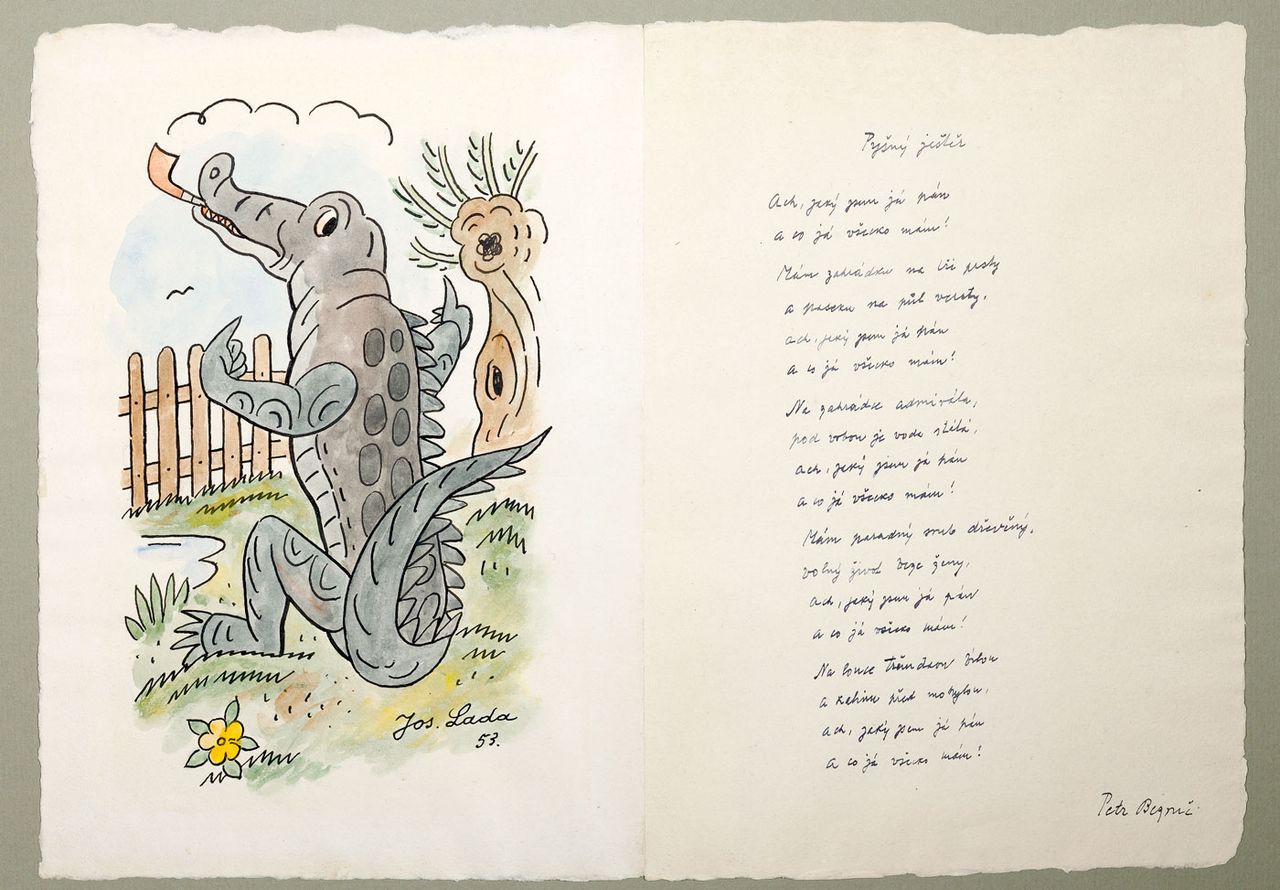 Jos. Lada
53.
Pyšný ještěr
Ach, jaký jsem já pán
a co já všecko mám!
Mám zahrádku na tři prsty
a paseku na půl versty,
ach, jaký jsem já pán
a co já všecko mám!
Na zahrádce admirála,
pod vrbou je voda stálá,
ach, jaký jsem já pán
a co já všecko mám!
Mám paradný srub dřevěný,
volný život beze ženy,
ach, jaký jsem já pán
a co já všecko mám!
Na louce třemdavu bílou
a kalinu před mohylou,
ach, jaký jsem já pán
a co já všecko mám!
Petr Bezruč